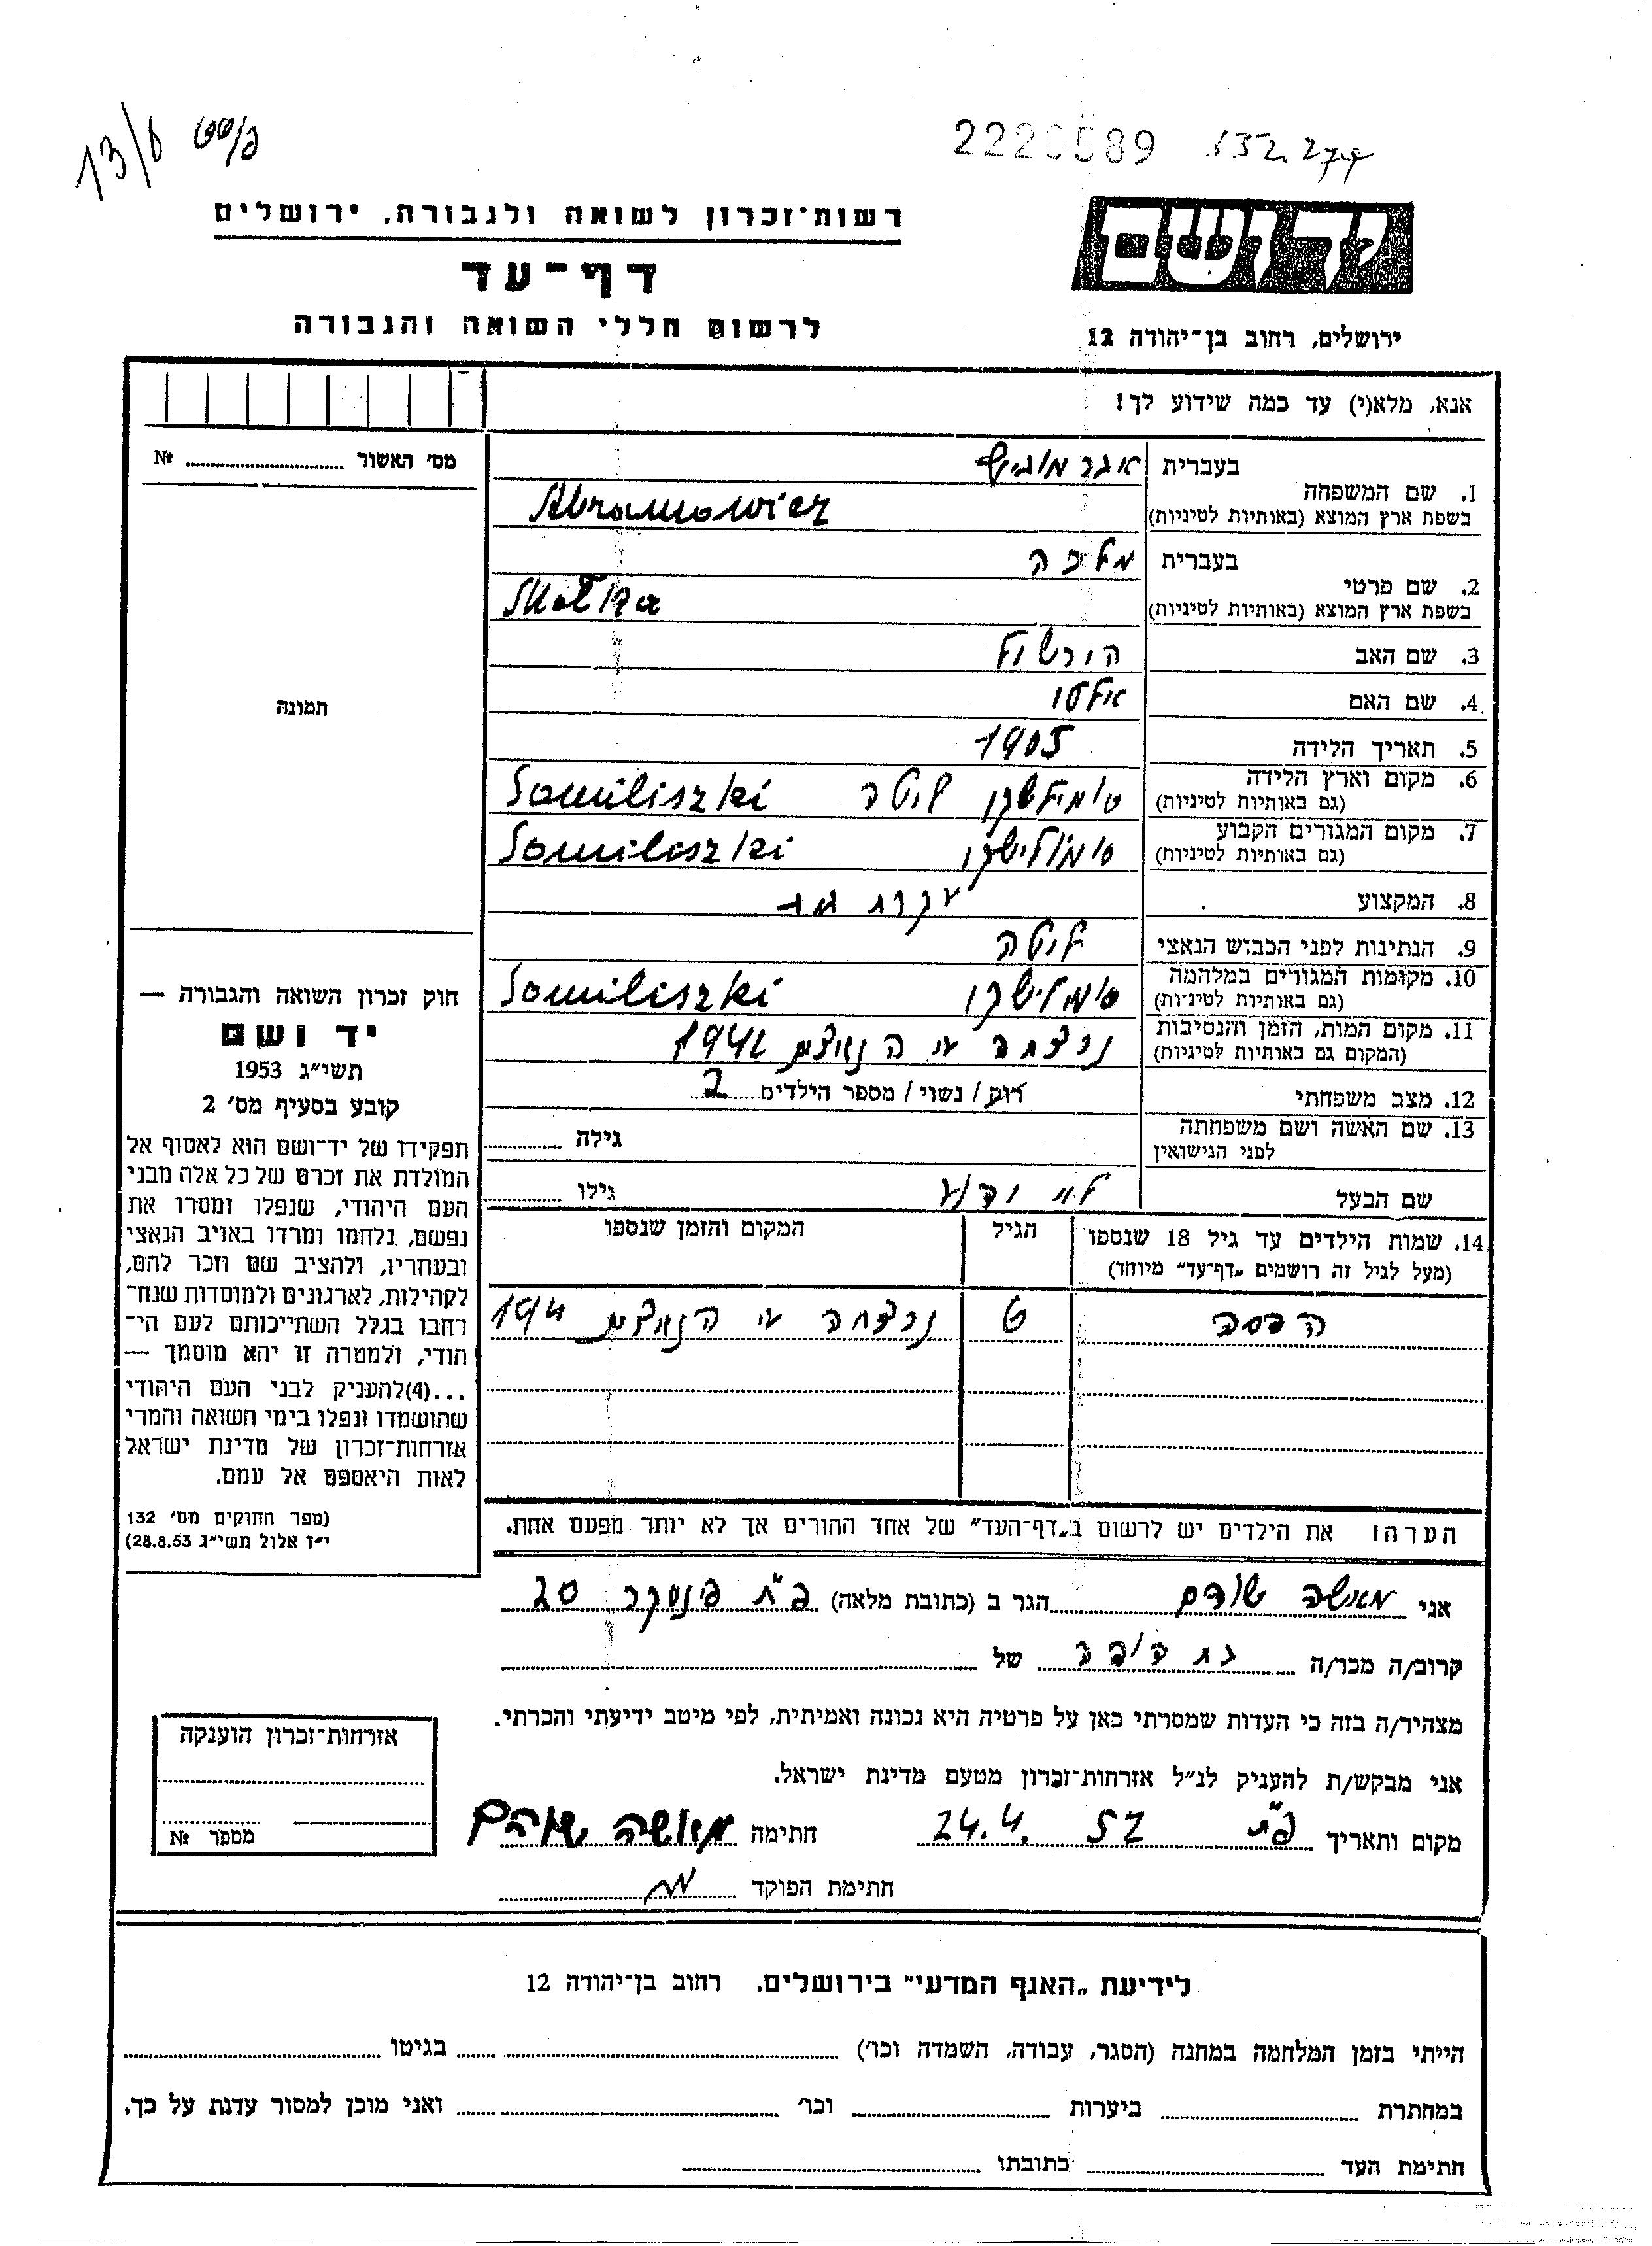 13/6
2226589 152.274
יד ושם
רשות־זכרון לשואה ולגבורה, ירושלים
דף־עד
לרשום חללי השואה והגבורה
ירושלים, רחוב בן־יהודה 12
אנא, מלא(י) עד כמה שידוע לך!
מס׳ האשור № ........
תמונה
1. שם המשפחה
בעברית אברמוביץ
בשפת ארץ המוצא (באותיות לטיניות) Abramowicz
2. שם פרטי
בעברית מלכה
בשפת ארץ המוצא (באותיות לטיניות) Malka
3. שם האב הורשול
4. שם האם
5. תאריך הלידה 1905
6. מקום וארץ הלידה
(גם באותיות לטיניות) סומילשקי ליטה Somiliszki
7. מקום המגורים הקבוע
(גם באותיות לטיניות) סומילישקי Somiliszki
8. המקצוע עקרת בית
9. הנתינות לפני הכבוש הנאצי ליטה
10. מקומות המגורים במלחמה
(גם באותיות לטיניות) סומלישקי Somiliszki
11. מקום המות, הזמן והנסיבות
(המקום גם באותיות לטיניות) נרצחה ע״י הנאצים 1941
12. מצב משפחתי רווק / נשוי / מספר הילדים 2
13. שם האשה ושם משפחתה
לפני הנישואין
גילה ........
שם הבעל לא ידוע גילו ........
14. שמות הילדים עד גיל 18 שנספו
(מעל לגיל זה רושמים „דף־עד״ מיוחד)
הגיל
המקום והזמן שנספו
נרצחה ע״י הנאצים 1941
הערה! את הילדים יש לרשום ב„דף־העד״ של אחד ההורים אך לא יותר מפעם אחת.
חוק זכרון השואה והגבורה —
יד ושם
תשי״ג 1953
קובע בסעיף מס׳ 2
תפקידו של יד־ושם הוא לאסוף אל
המולדת את זכרם של כל אלה מבני
העם היהודי, שנפלו ומסרו את
נפשם, נלחמו ומרדו באויב הנאצי
ובעוזריו, ולהציב שם וזכר להם,
לקהילות, לארגונים ולמוסדות שנח־
רחבו בגלל השתייכותם לעם הי־
הודי, ולמטרה זו יהא מוסמך —
...(4)להעניק לבני העם היהודי
שהושמדו ונפלו בימי השואה והמרי
אזרחות־זכרון של מדינת ישראל
לאות היאספם אל עמם.
(ספר החוקים מס׳ 132
י״ז אלול תשי״ג 28.8.53)
אני מאשה שוהם הגר ב (כתובת מלאה) פ״ת פינסקר 20
קרוב/ה מכר/ה בת דודה של ........
מצהיר/ה בזה כי העדות שמסרתי כאן על פרטיה היא נכונה ואמיתית, לפי מיטב ידיעתי והכרתי.
אני מבקש/ת להעניק לנ״ל אזרחות־זכרון מטעם מדינת ישראל.
מקום ותאריך פ״ת 24.4.57 חתימה מאשה שוהם
חתימת הפוקד
אזרחות־זכרון הוענקה
מספר №
לידיעת „האגף המדעי״ בירושלים. רחוב בן־יהודה 12
הייתי בזמן המלחמה במחנה (הסגר, עבודה, השמדה וכו׳) ........ בגיטו ........
במחתרת ........ ביערות ........ וכו׳ ........ ואני מוכן למסור עדות על כך.
חתימת העד ........ כתובתו ........